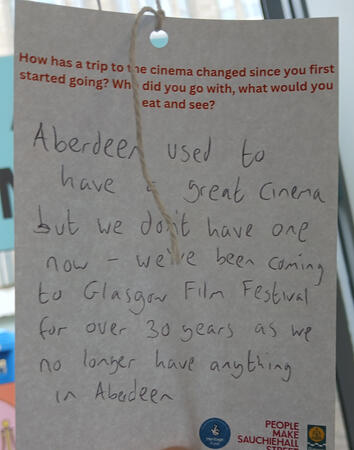 How has a trip to the cinema changed since you first
started going? Who did you go with, what would you
eat and see?
Aberdeen used to
have a great Cinema
but we don't have one
now - we've been coming
to Glasgow Film Festival
for over 30 years as we
no longer have anything
in Aberdeen
Heritage
Fund
PEOPLE
MAKE
SAUCHIEHALL
STREET